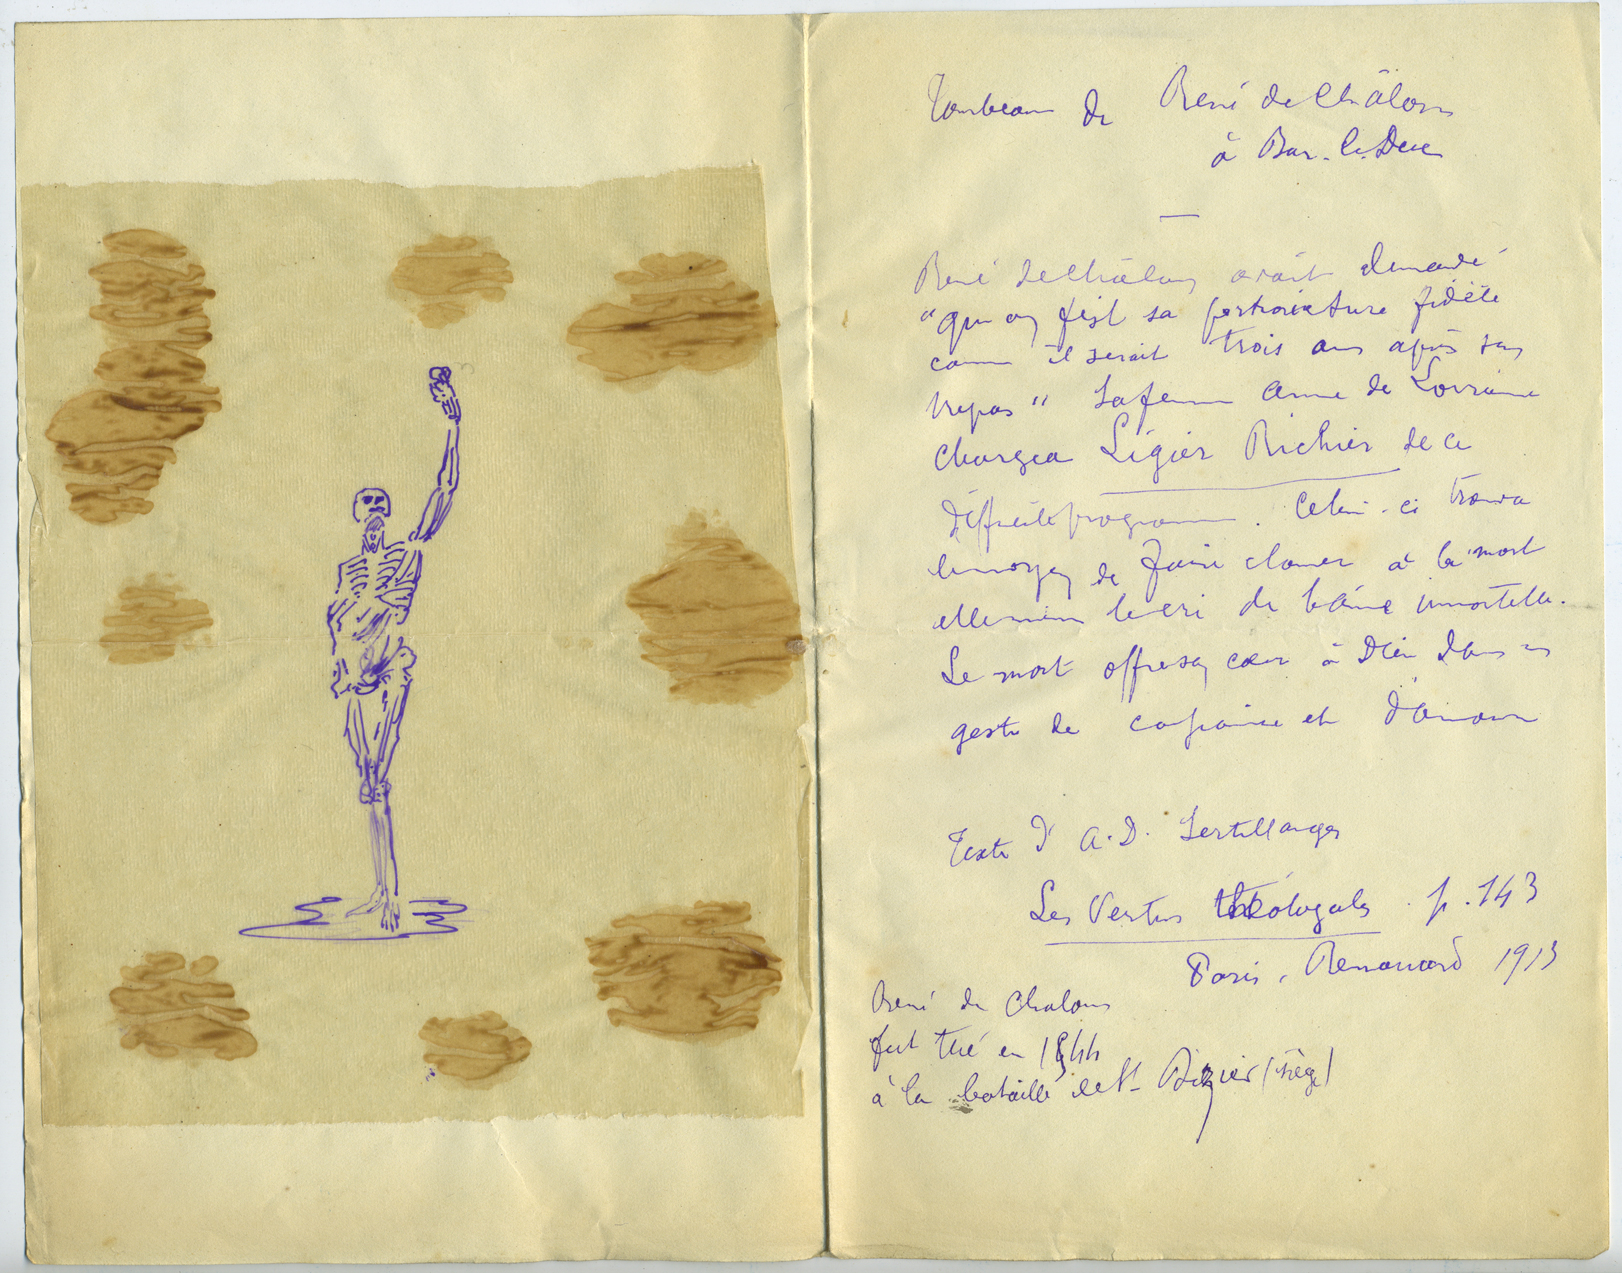 Tombeau de René de Châlons
à Bar-le-Duc
René de Châlons avait demandé
"qu'on feist sa portraicture fidèle
comme il serait trois ans après son
trepas" Sa femme Anne de Lorraine
chargea Ligier Richier de ce
difficile programme. Celui-ci trouva
le moyen de faire clamer à la mort
elle même le cri de l'âme immortelle.
Le mort offre son cœur à Dieu dans un
geste de confiance et d'amour
Texte d'A.D. Sertillanges
Les Vertus théologales. p. 143
Paris, Renouard 1913
René de Chalons
fut tué en 1544
à la bataille de St Dizier (siège)